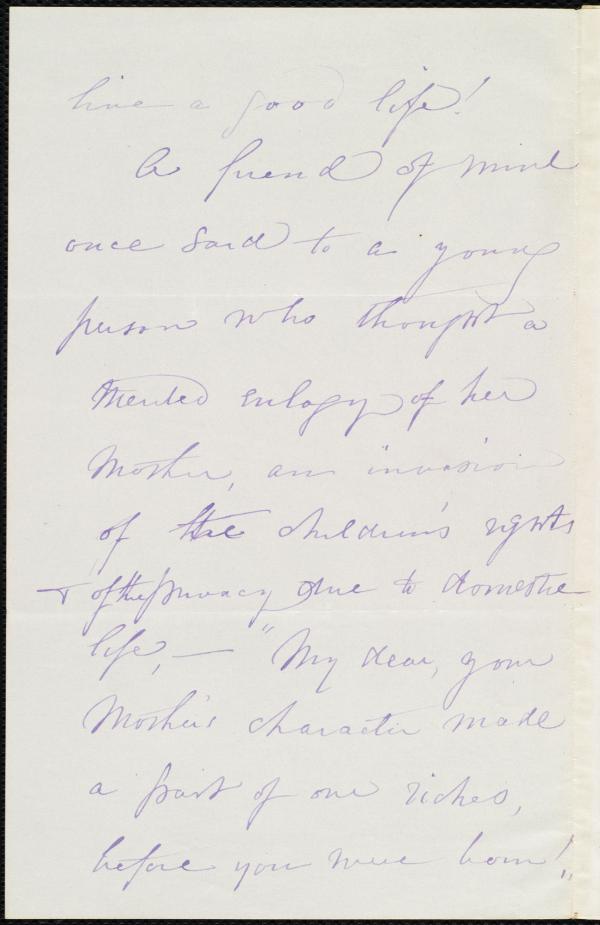 live a good life!
A friend of mine
once said to a young
person who thought a
merited eulogy of her
Mother, an invasion
of the children's rights
& of the privacy due to domestic
life, — "My dear, your
Mother's character made
a part of our riches,
before you were born!"